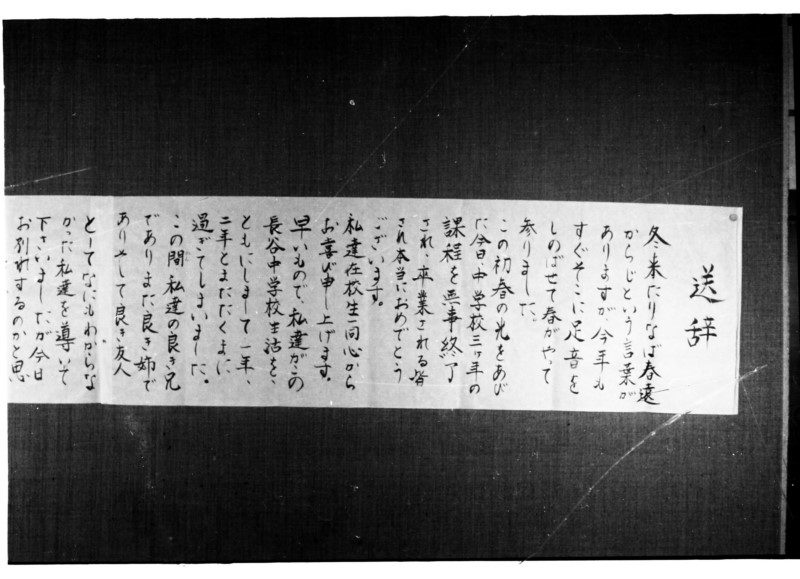 送辞
冬来たりなば春遠
からじという言葉が
ありますが、今年も
すぐそこに足音を
しのばせて春がやって
参りました。
この初春の光をあび
た今日、中学校三ヶ年の
課程を無事終了
され、卒業される皆
され本当におめでとう
ございます。
私達在校生一同心から
お喜び申し上げます。
早いもので、私達がこの
長谷中学校生活を、
ともにしまして一年、
二年とまたたくまに
過ぎてしまいました。
この間、私達の良き兄
でありまた良き姉で
ありそして良き友人
としてなにもわからな
かった私達を導いて
下さいましたが今日
お別れするのかと思